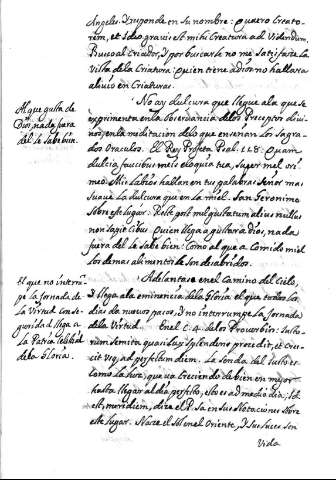 Angeles. Y responde en su nombre: Quæro Creato-
rem, et Ideo gravis est mihi Creatura ad Videndum.
Busco al Criador, Y por buscarle no me satisface la
Vista de la Criatura: Quien tiene a dios no hallara
alivio en Criaturas.
Al que gusta de
Dios, nada fuera
del le sabe bien.
No ay dulcura que llegue a la que se
experimenta en la Observancia de los Preceptos divi-
nos, en la meditacion de lo que enseñan los Sagra-
dos Oraculos. El Rey Profeta Psal. 118: Quam
dulcia faucibus meis eloquia tua, super mel ori
meo. Mis Labios hallan en tus palabras Señor mas
suave La dulcura que en la miel. San Geronimo
sobre este lugar: Post gustatum Dius nullus
non sapit cibus. Quien llega a gustar a dios, nada
fuera del le sabe bien: Como al que a Comido miel
los demas alimentos le son desabridos.
El que no interrũ-
pe la Jornada de
La Virtud conse-
guridad llega a
La Patria celestial
de la Gloria.
Adelantase en el Camino del Cielo,
Y llega a la eminencia de la Gloria el que todos los
dias da nuevos pasos, Y no interrumpe la Jornada
de la Virtud. En el C. 4. de los Proverbios: Justo-
rum semita quasi lux splendens procedit, et Cres-
cit usq. ad perfectum diem. La senda del Justo es
Como la Luz, que va Creciendo de bien en mejor
hasta llegar al dia perfecto, esto es al medio dia: Id
est, meridiem, dize el P. Sa en sus Notaciones sobre
este lugar. Nace el Sol en el Oriente, Y sus luces son
Vida